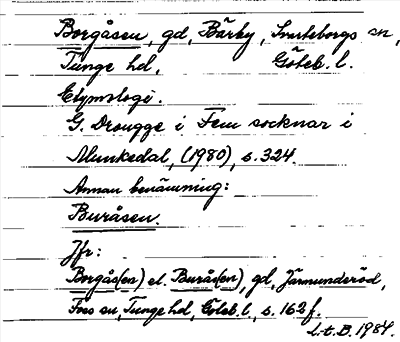 Borgåsen, gd, Bärby, Svarteborgs sn,
Tunge hd, Göteb. l.
Etymologi.
G. Drougge i Fem socknar i
Munkedal, (1980), s. 324.
Annan benämning:
Buråsen.
Jfr:
Borgås(en) el. Burås(en), gd, Järmunderöd,
Foss sn, Tunge hd, Göteb. l., s. 162 f.
L.t.B. 1984.